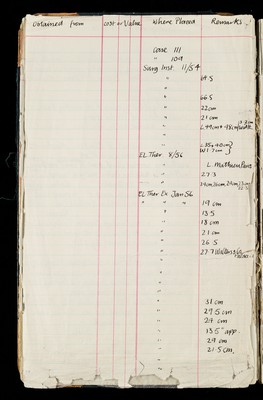 Obtained from Cost or Value Where Placed Remarks
Case 111
" 109
Surg Inst. 11/54
" 64.5
"
" 66.5
" 22cm
" 21cm
" L 49cm + 48cm
"
" L 35 + 40cm
W 1.7cm
EL Ther 8/56
" L Mathieu Paris
" 27.3
"
EL Ther Ex Jan 56
" " 19 cm
" 13.5
" 18 cm
" 21 cm
" 26.5
" 27.7
"
"
"
"
" 31 cm
" 29.5 cm
" 24 cm
" 13.5" app.
" 29 cm
" 21.5cm.
"